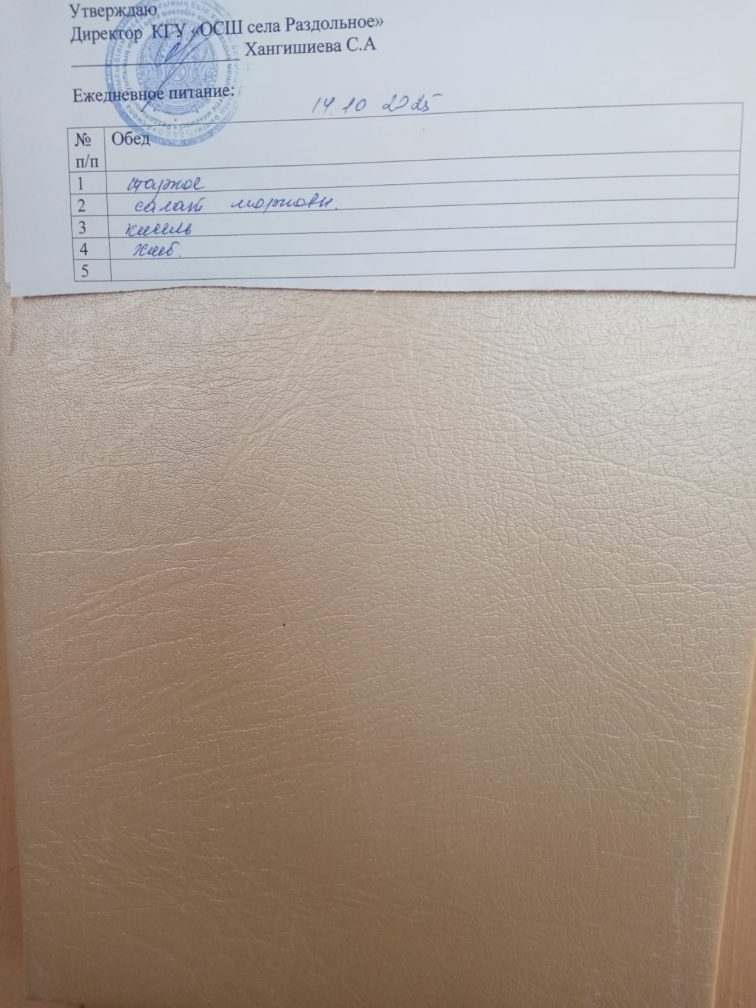 Утверждаю
Директор КГУ «ОСШ села Раздольное»
Хангишиева С.А
Ежедневное питание:
14.10 2025
№ п/п Обед
1 жаркое
2 салат морковн.
3 кисель
4 хлеб.
5